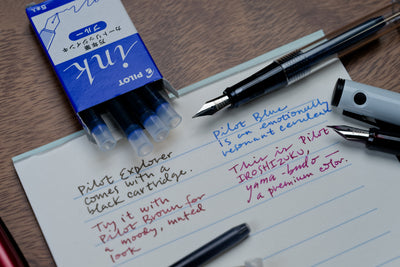 万年筆
カートリッジインキ
ブルー
ink
PILOT
Pilot Explorer
comes with a
black cartridge.
Try it with
Pilot Brown for
a moody, muted
look
Pilot Blue
is an emotionally
resonant cerulean
This is Pilot
IROSHIZUKU
yama-budo
a premium color.